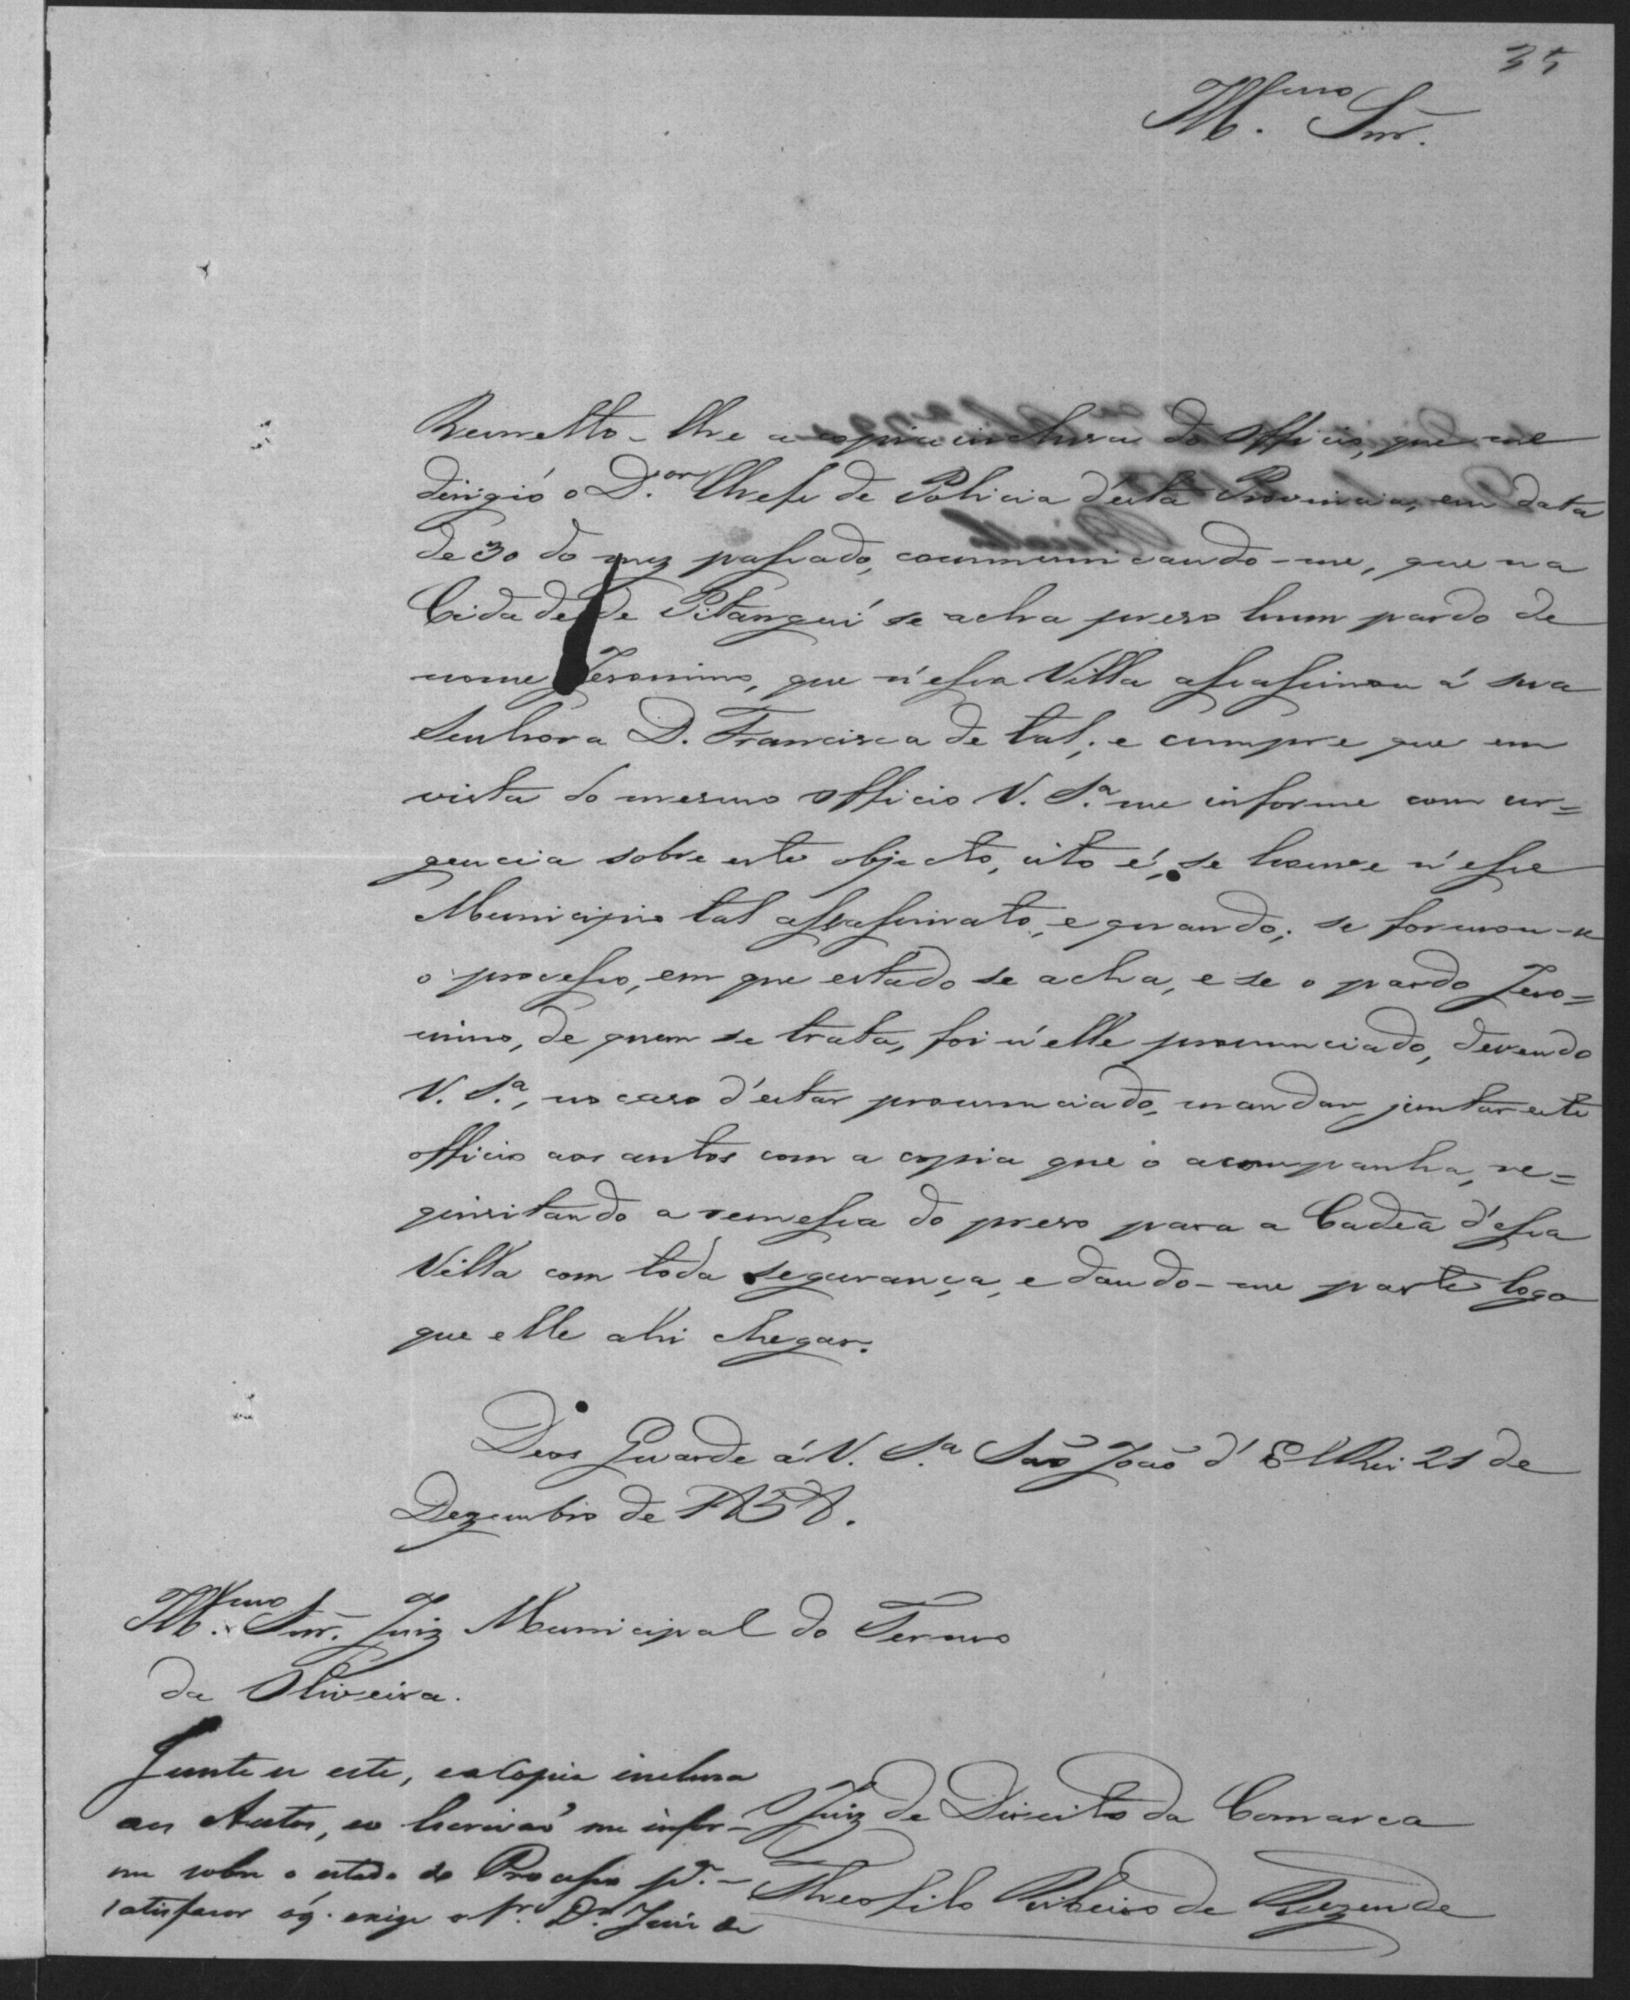 35
Ill.mo Snr.
Remetto-lhe a copia inclusa do Officio, que me
dirigió o D.or Chefe de Policia d'esta Provincia, em data
de 30 do mez passado, communicando-me, que na
Cidade de Pitangui se acha preso hum pardo de
nome Jeronimo, que n'essa Villa assassinou á sua
Senhora D. Francisca de tal; e cumpre que em
vista do mesmo officio V. S.a me informe com ur=
gencia sobre este objecto, isto é, se houve n'esse
Municipio tal assassinato, e quando; se formou-se
o processo, em que estado se acha, e se o pardo Jero=
nimo, de quem se trata, foi n'elle pronunciado, devendo
V. S.a, no caso d'estar pronunciado, mandar juntar este
officio aos autos com a copia que o acompanha, re=
quisitando a remessa do preso para a Cadêa d'essa
Villa com toda segurança, e dando-me parte logo
que elle ahi chegar.
Deos Guarde á V. S.a São João d'El Rei 21 de
Dezembro de 1858.
Ill.mo Snr. Juiz Municipal do Termo
da Oliveira.
Junte-se este, e a Copia inclusa
aos Autos, e o Escrivão me infor-
me sobre o estado do Processo p.a
satisfazer o q. exige o Sr. Dr. Juiz de
Juiz de Direito da Comarca
Theofilo Ribeiro de Rezende